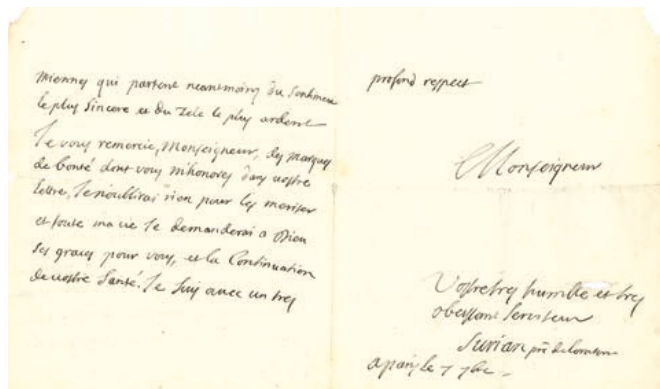 miennes qui partent neantmoins du sentiment
le plus sincere et du zele le plus ardent
Je vous remercie, Monseigneur, des marques
de bonté dont vous m'honores dans vostre
lettre, Je n'oublirai rien pour les meriter
et toute ma vie Je demanderai a Dieu
ses graces pour vous, et la Continuation
de vostre Santé. Je suis avec un tres
profond respect
Monseigneur
Vostre tres humble et tres
obeissant serviteur
Surian
a paris le 7